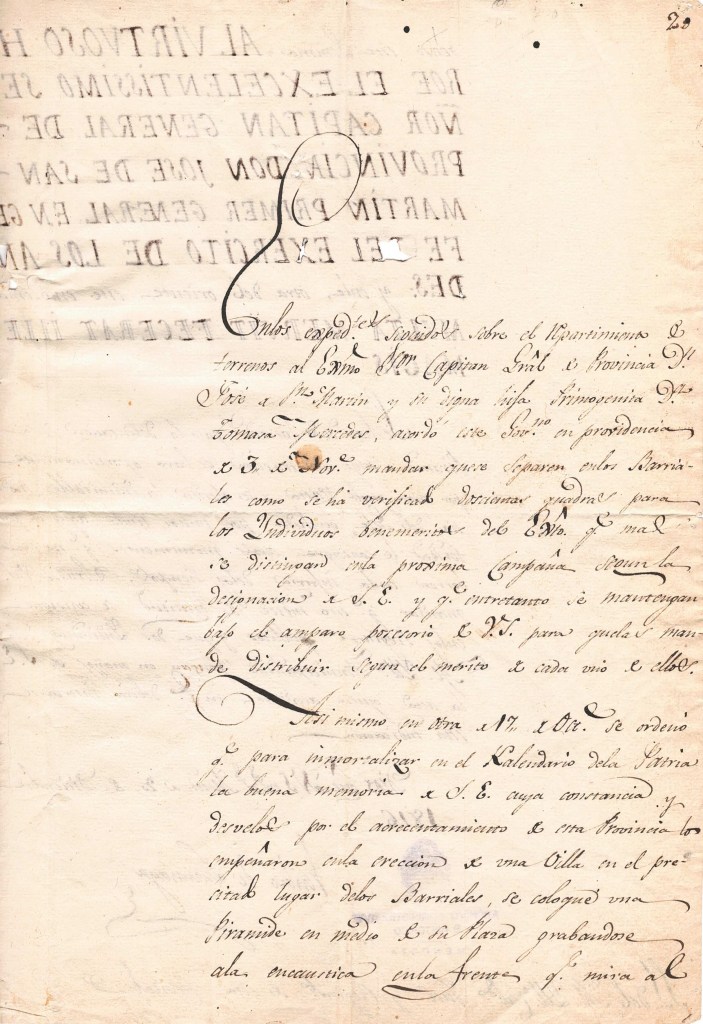 20
AL VIRTVOSO H
ROE EL EXCELENTISIMO SE
ÑOR CAPITAN GENERAL DE
PROVINCIA DON JOSE DE SAN-
MARTIN PRIMER GENERAL EN GE
FE DEL EXERCITO DE LOS AN
DES
Enlos exped.tes seguidos sobre el repartimiento de
terrenos al Exmo Sor Capitan Grâl de Provincia Dn
José de Sn Martin y su digna hija Primogenita Dª
Tomasa Mercedes, acordó este Gov.no en providencia
de 3 de Nov.e mandar quese separen enlos Barria-
les como se ha verificado doscientas quadras para
los Individuos benemeritos del Exto. q.e mas
se distingan enla proxima Campaña segun la
designacion de S. E. y q.e entretanto se mantengan
bajo el amparo posesorio de V.S. para quelas man-
de distribuir segun el merito de cada vno de ellos.
Asi mismo en otra de 17 de Oct.e se ordenó
q.e para inmortalizar en el Kalendario dela Patria
la buena memoria de S. E. cuya constancia y
desvelos por el acrecentamiento de esta Provincia los
empeñaron enla ereccion de vna Villa en el pre-
citado lugar delos Barriales, se coloque vna
Piramide en medio de su Plaza grabandose
ala encaustica enla frente q.e mira al